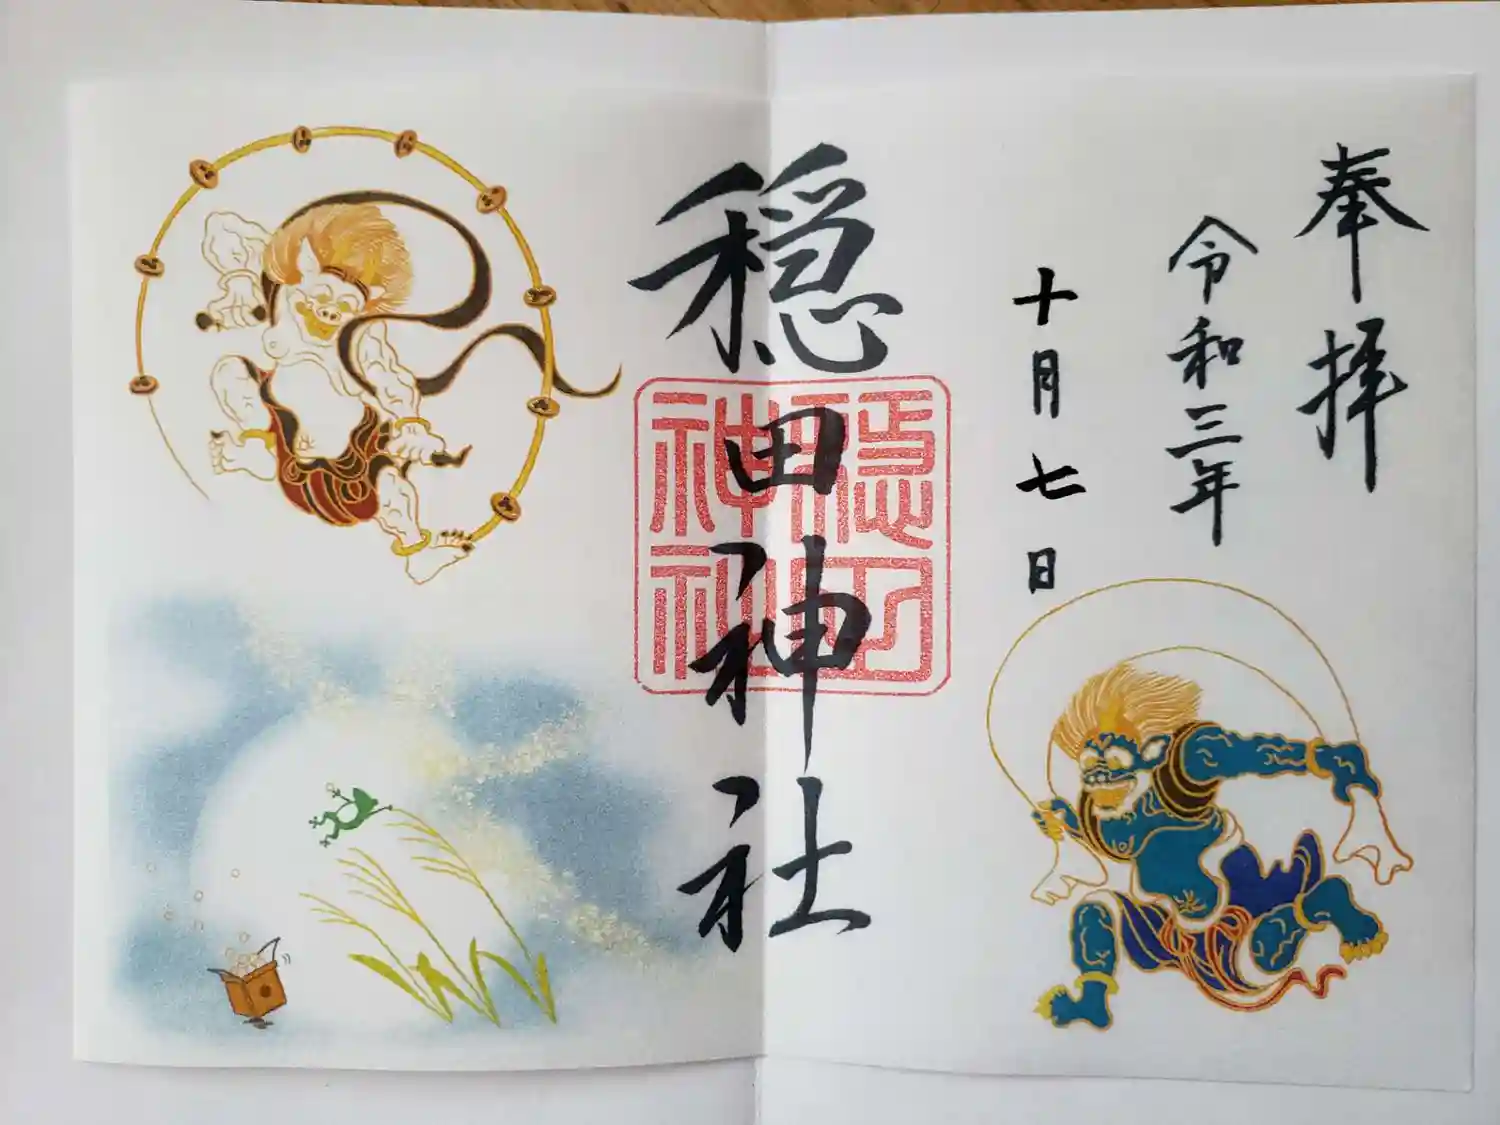 奉拝
令和三年
十月七日
穏田神社
穏田
神社